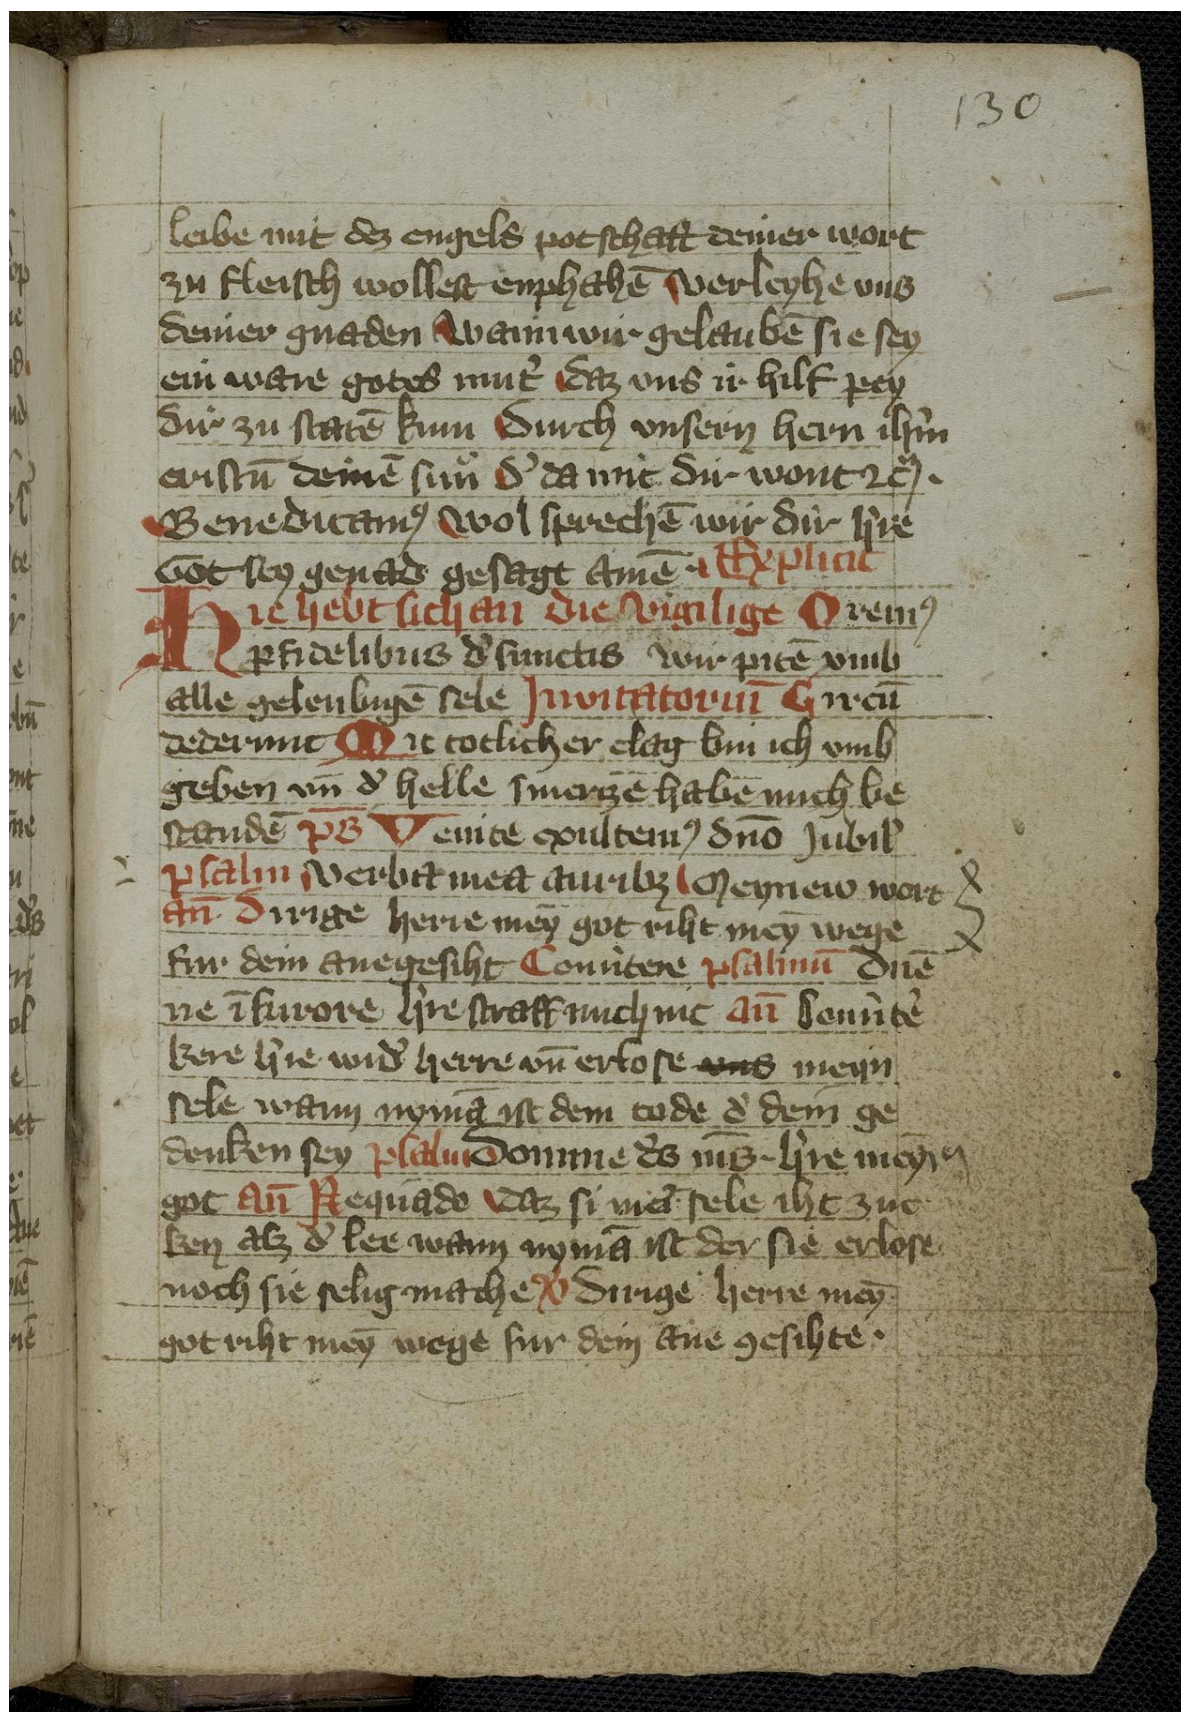 130
leibe mit dez engels potschaft deiner wort
zu fleisch wollest enphahē verleyhe uns
deiner gnaden wann wir gelaubē sie sey
ein ware gotes mut᷒ daz uns ir hilf pey
dir zu statē kum Durch unsern hern ihm̄
cristū deinē sun d᷒ da mit dir wont ꝛc̄.
Benedicamꝰ wol sprechē wir dir h̄re
Got sey genad gesagt amē Explicit
Hie hebt sich an die vigilige Oremꝰ
p fidelibus d᷒functis wir pitē umb
alle geleubigē sele Invitatoriū Circū
dederunt Mit totlicher clag bin ich umb
geben uñ d᷒ helle smerzē habē mich be
standē ps Venite exultemꝰ dn̄o Jubil᷒
psalm Verba mea auribꝫ Meynew wort
añ Dirige herre meȳ got riht meȳ wege
fur dein anegesiht Conūtere psalmū Dn̄e
ne ī furore h̄re straff mich nit añ Conūte᷒
kere h̄re wid᷒ herre uñ erlose uns meyn
sele wann nymā ist dem tode d᷒ dein ge
denken sey psalm Domine ds̄ ms̄ h̄re meyn
got añ Requādo Daz si mei᷒ sele iht zuc
ken alz d᷒ lee wann nymā ist der sie erlose
noch sie selig mache ℣ Dirige herre meȳ
got riht meȳ wege fur dein ane gesihte.